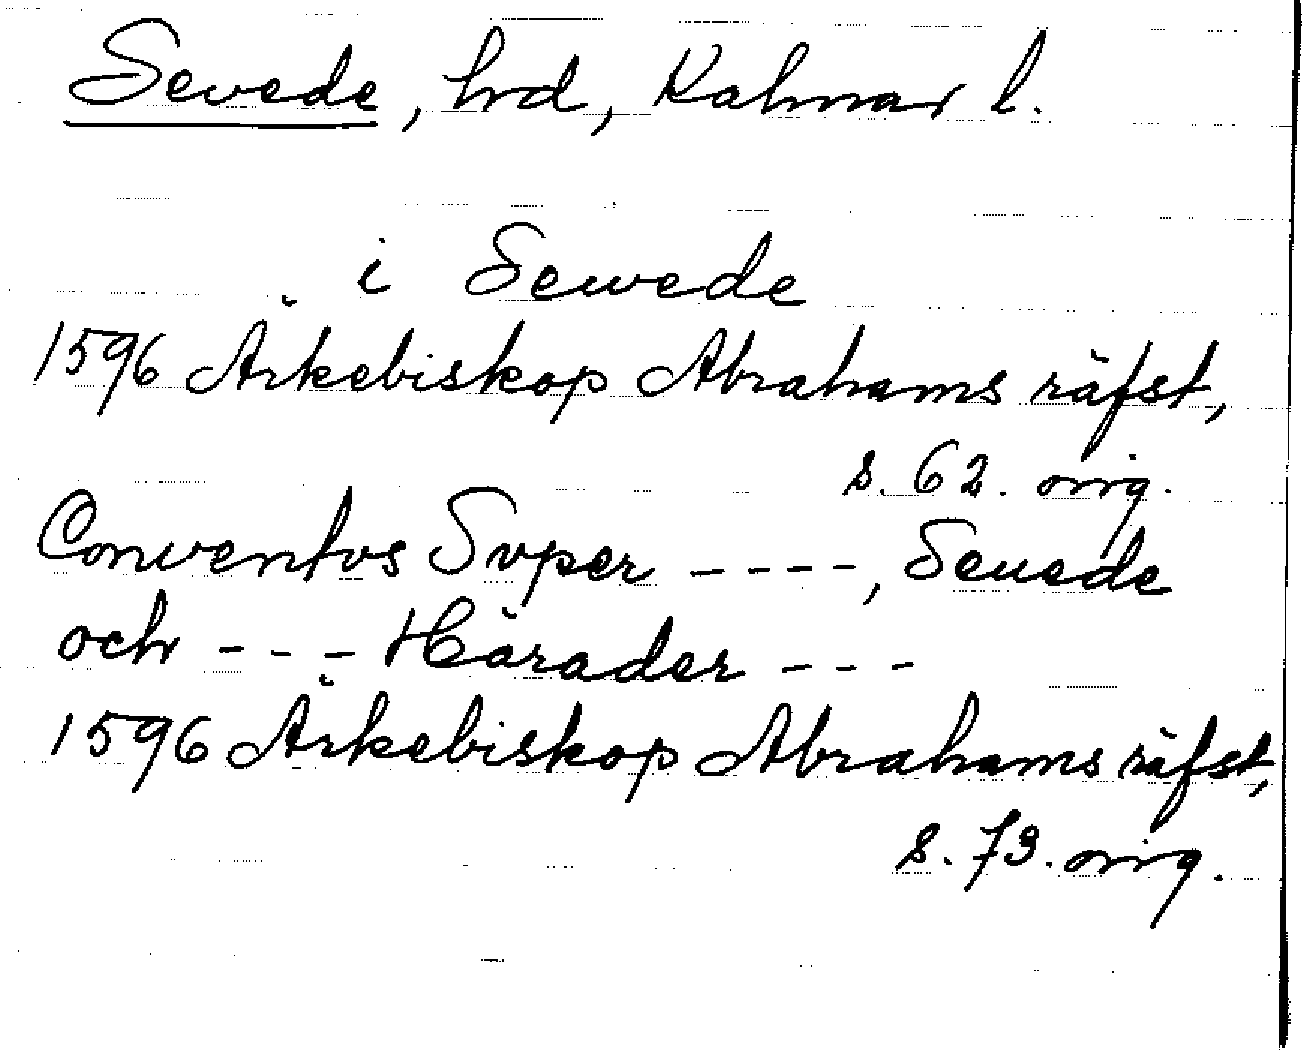 Sevede, hrd, Kalmar l.
i Sewede
1596 Ärkebiskop Abrahams räfst,
s. 62. orig.
Conventus Super ----, Seuede
och --- Härader ---
1596 Ärkebiskop Abrahams räfst,
s. 73. orig.